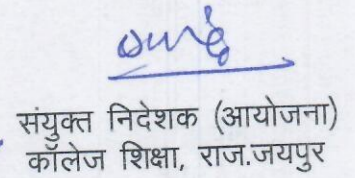 संयुक्त निदेशक (आयोजना)
कॉलेज शिक्षा, राज.जयपुर